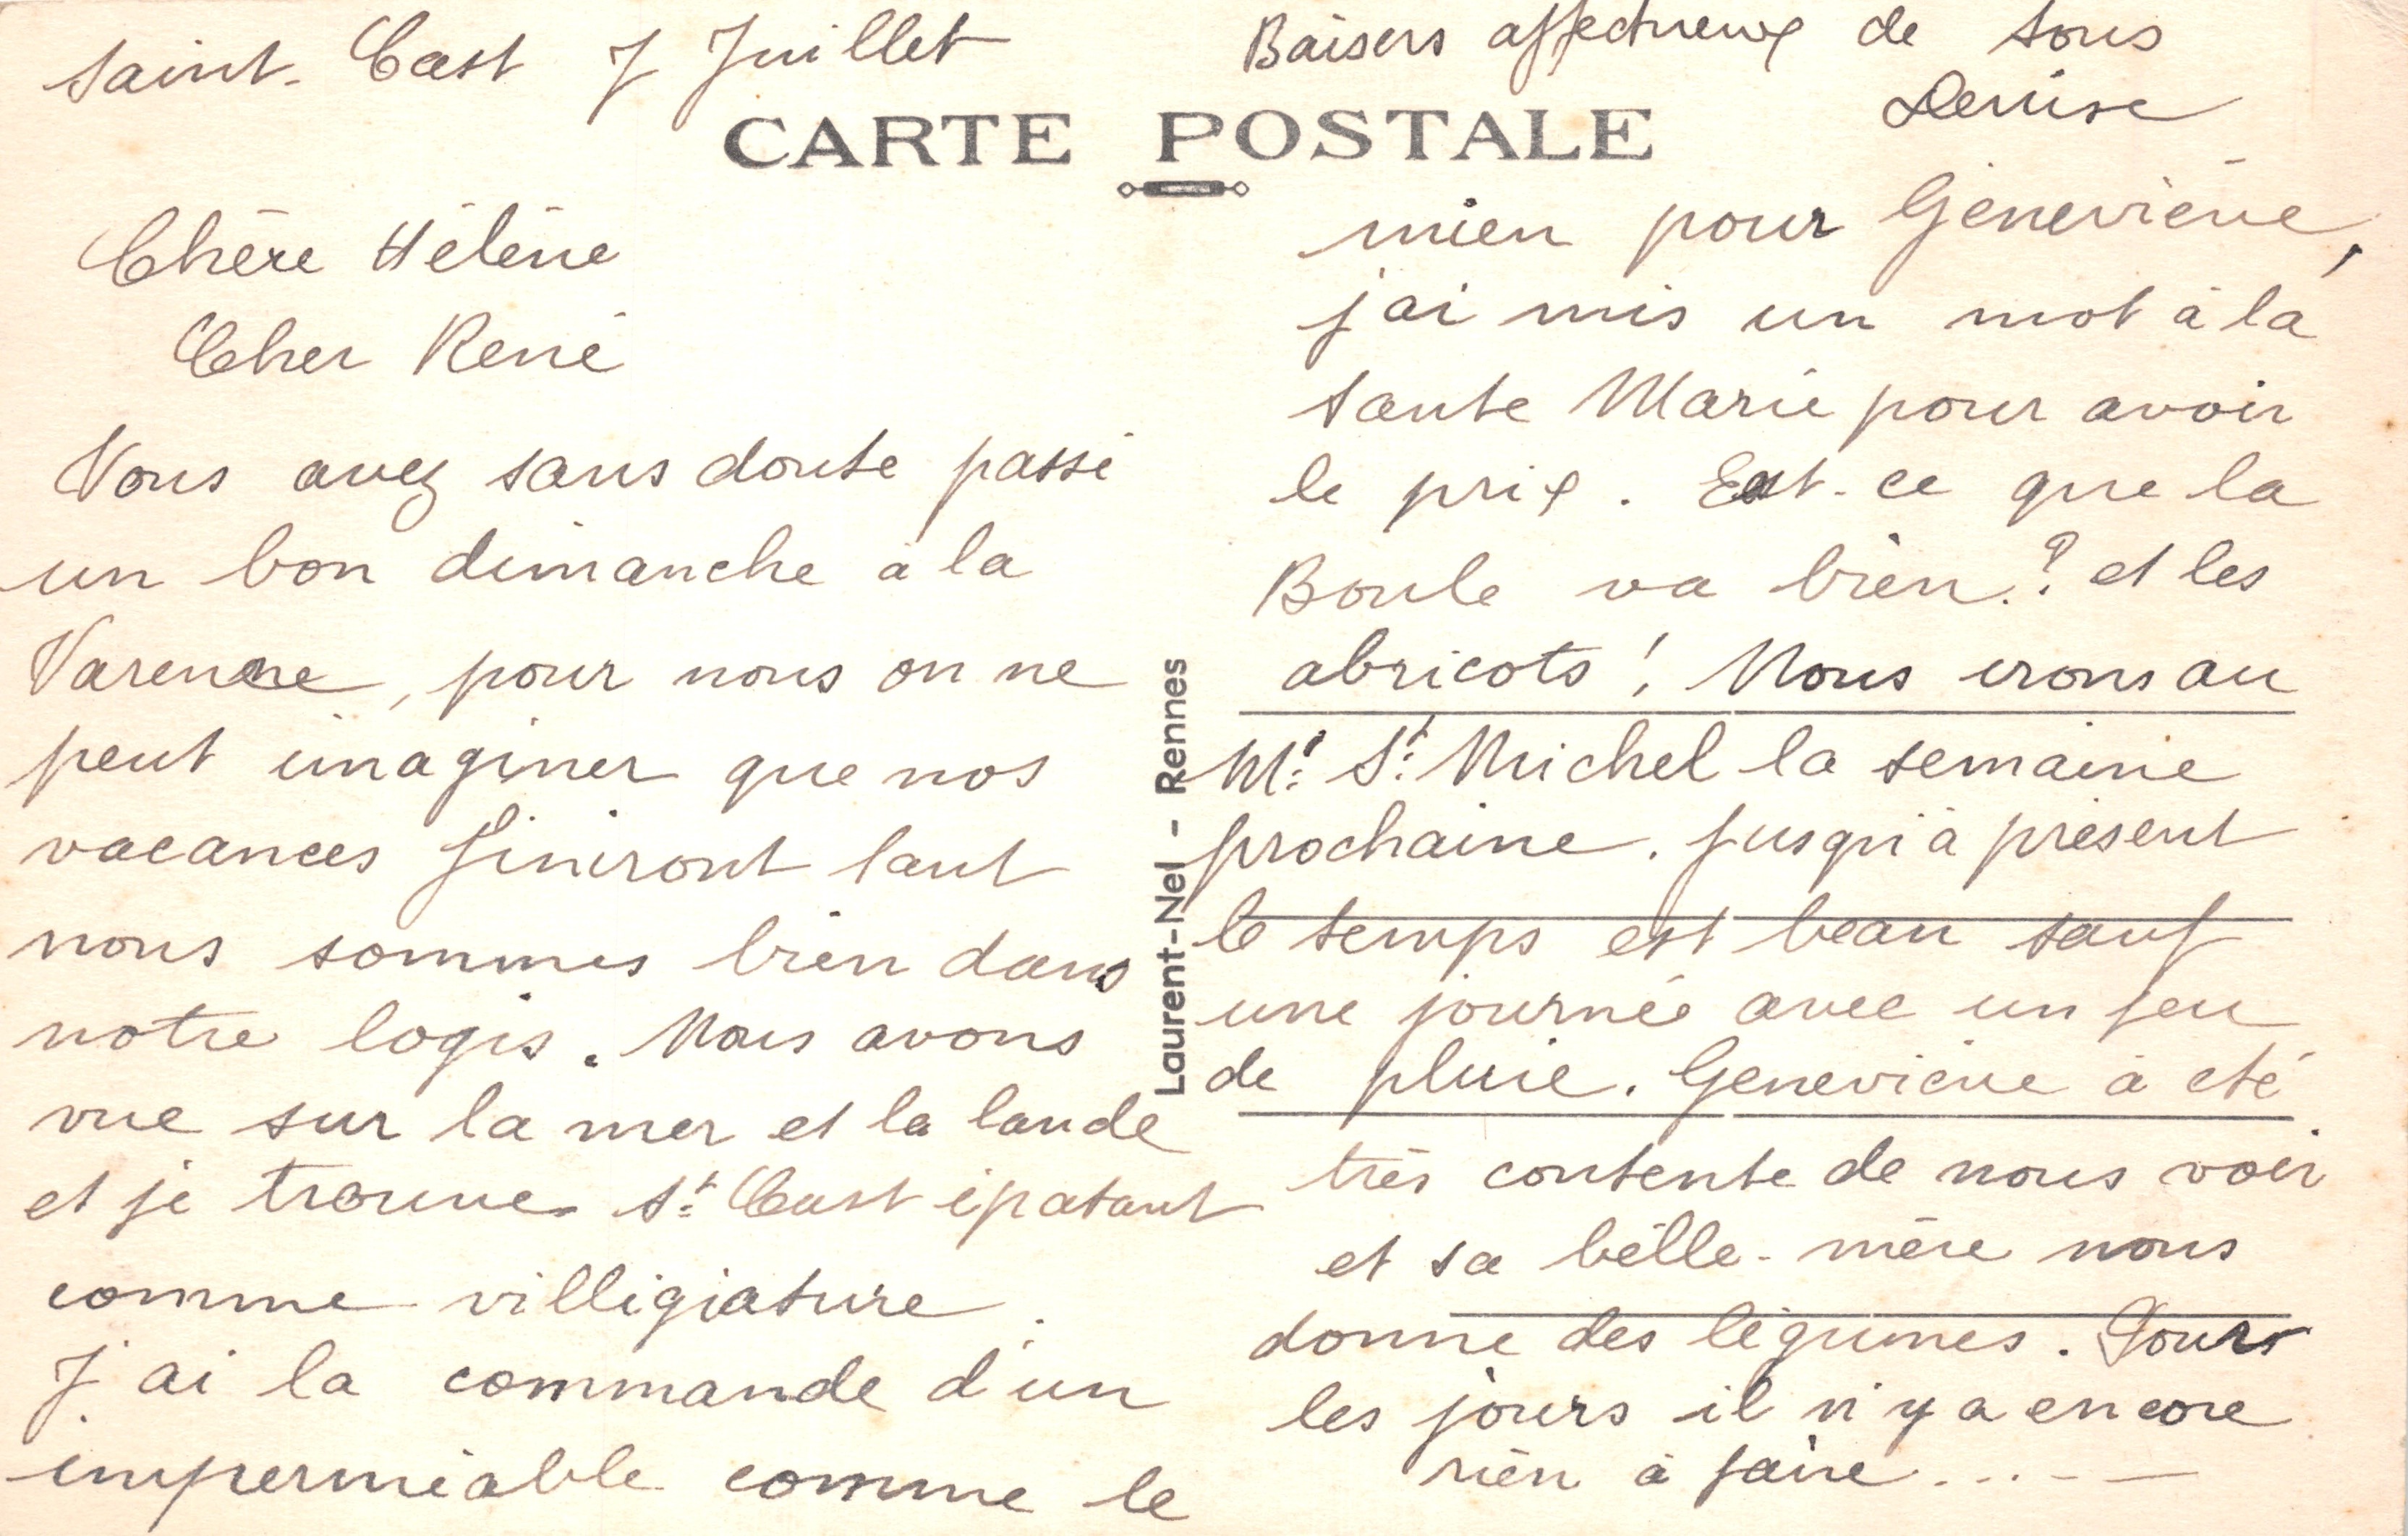 Saint-Cast 7 Juillet
CARTE POSTALE
Chère Hélène
Cher René
Vous avez sans doute passé
un bon dimanche à la
Varenne, pour nous on ne
peut imaginer que nos
vacances finiront tant
nous sommes bien dans
notre logis. Nous avons
vue sur la mer et la lande
et je trouve St Cast épatant
comme villégiature.
J'ai la commande d'un
imperméable comme le
mien pour Geneviève,
j'ai mis un mot à la
tante Marie pour avoir
le prix. Est-ce que la
Boule va bien? et les
abricots! Nous irons au
Mt St Michel la semaine
prochaine. Jusqu'à présent
le temps est beau sauf
une journée avec un peu
de pluie. Geneviève à été
très contente de nous voir
et sa belle-mère nous
donne des légumes. Tours
les jours il n'y a encore
rien à faire.....
Baisers affectueux de tous
Denise
Laurent-Nel - Rennes